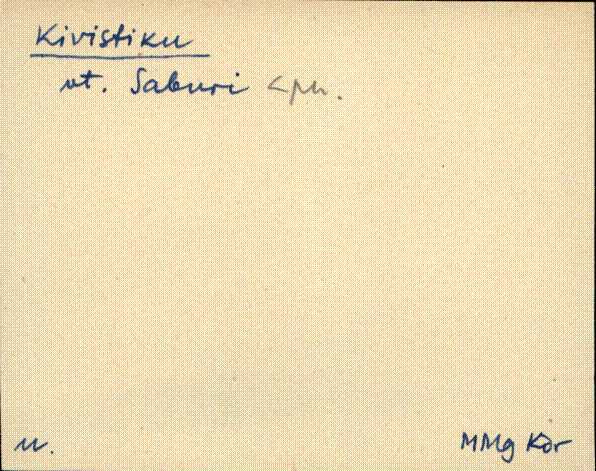 Kivistiku
vt. Saburi < pn.
n.
MMg Kor